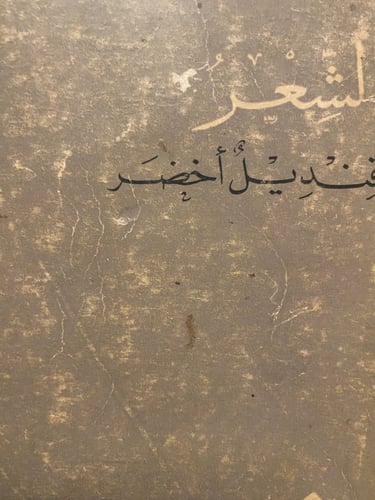 لشِّعْرُ
قِنْدِيلٌ أخضَرَ